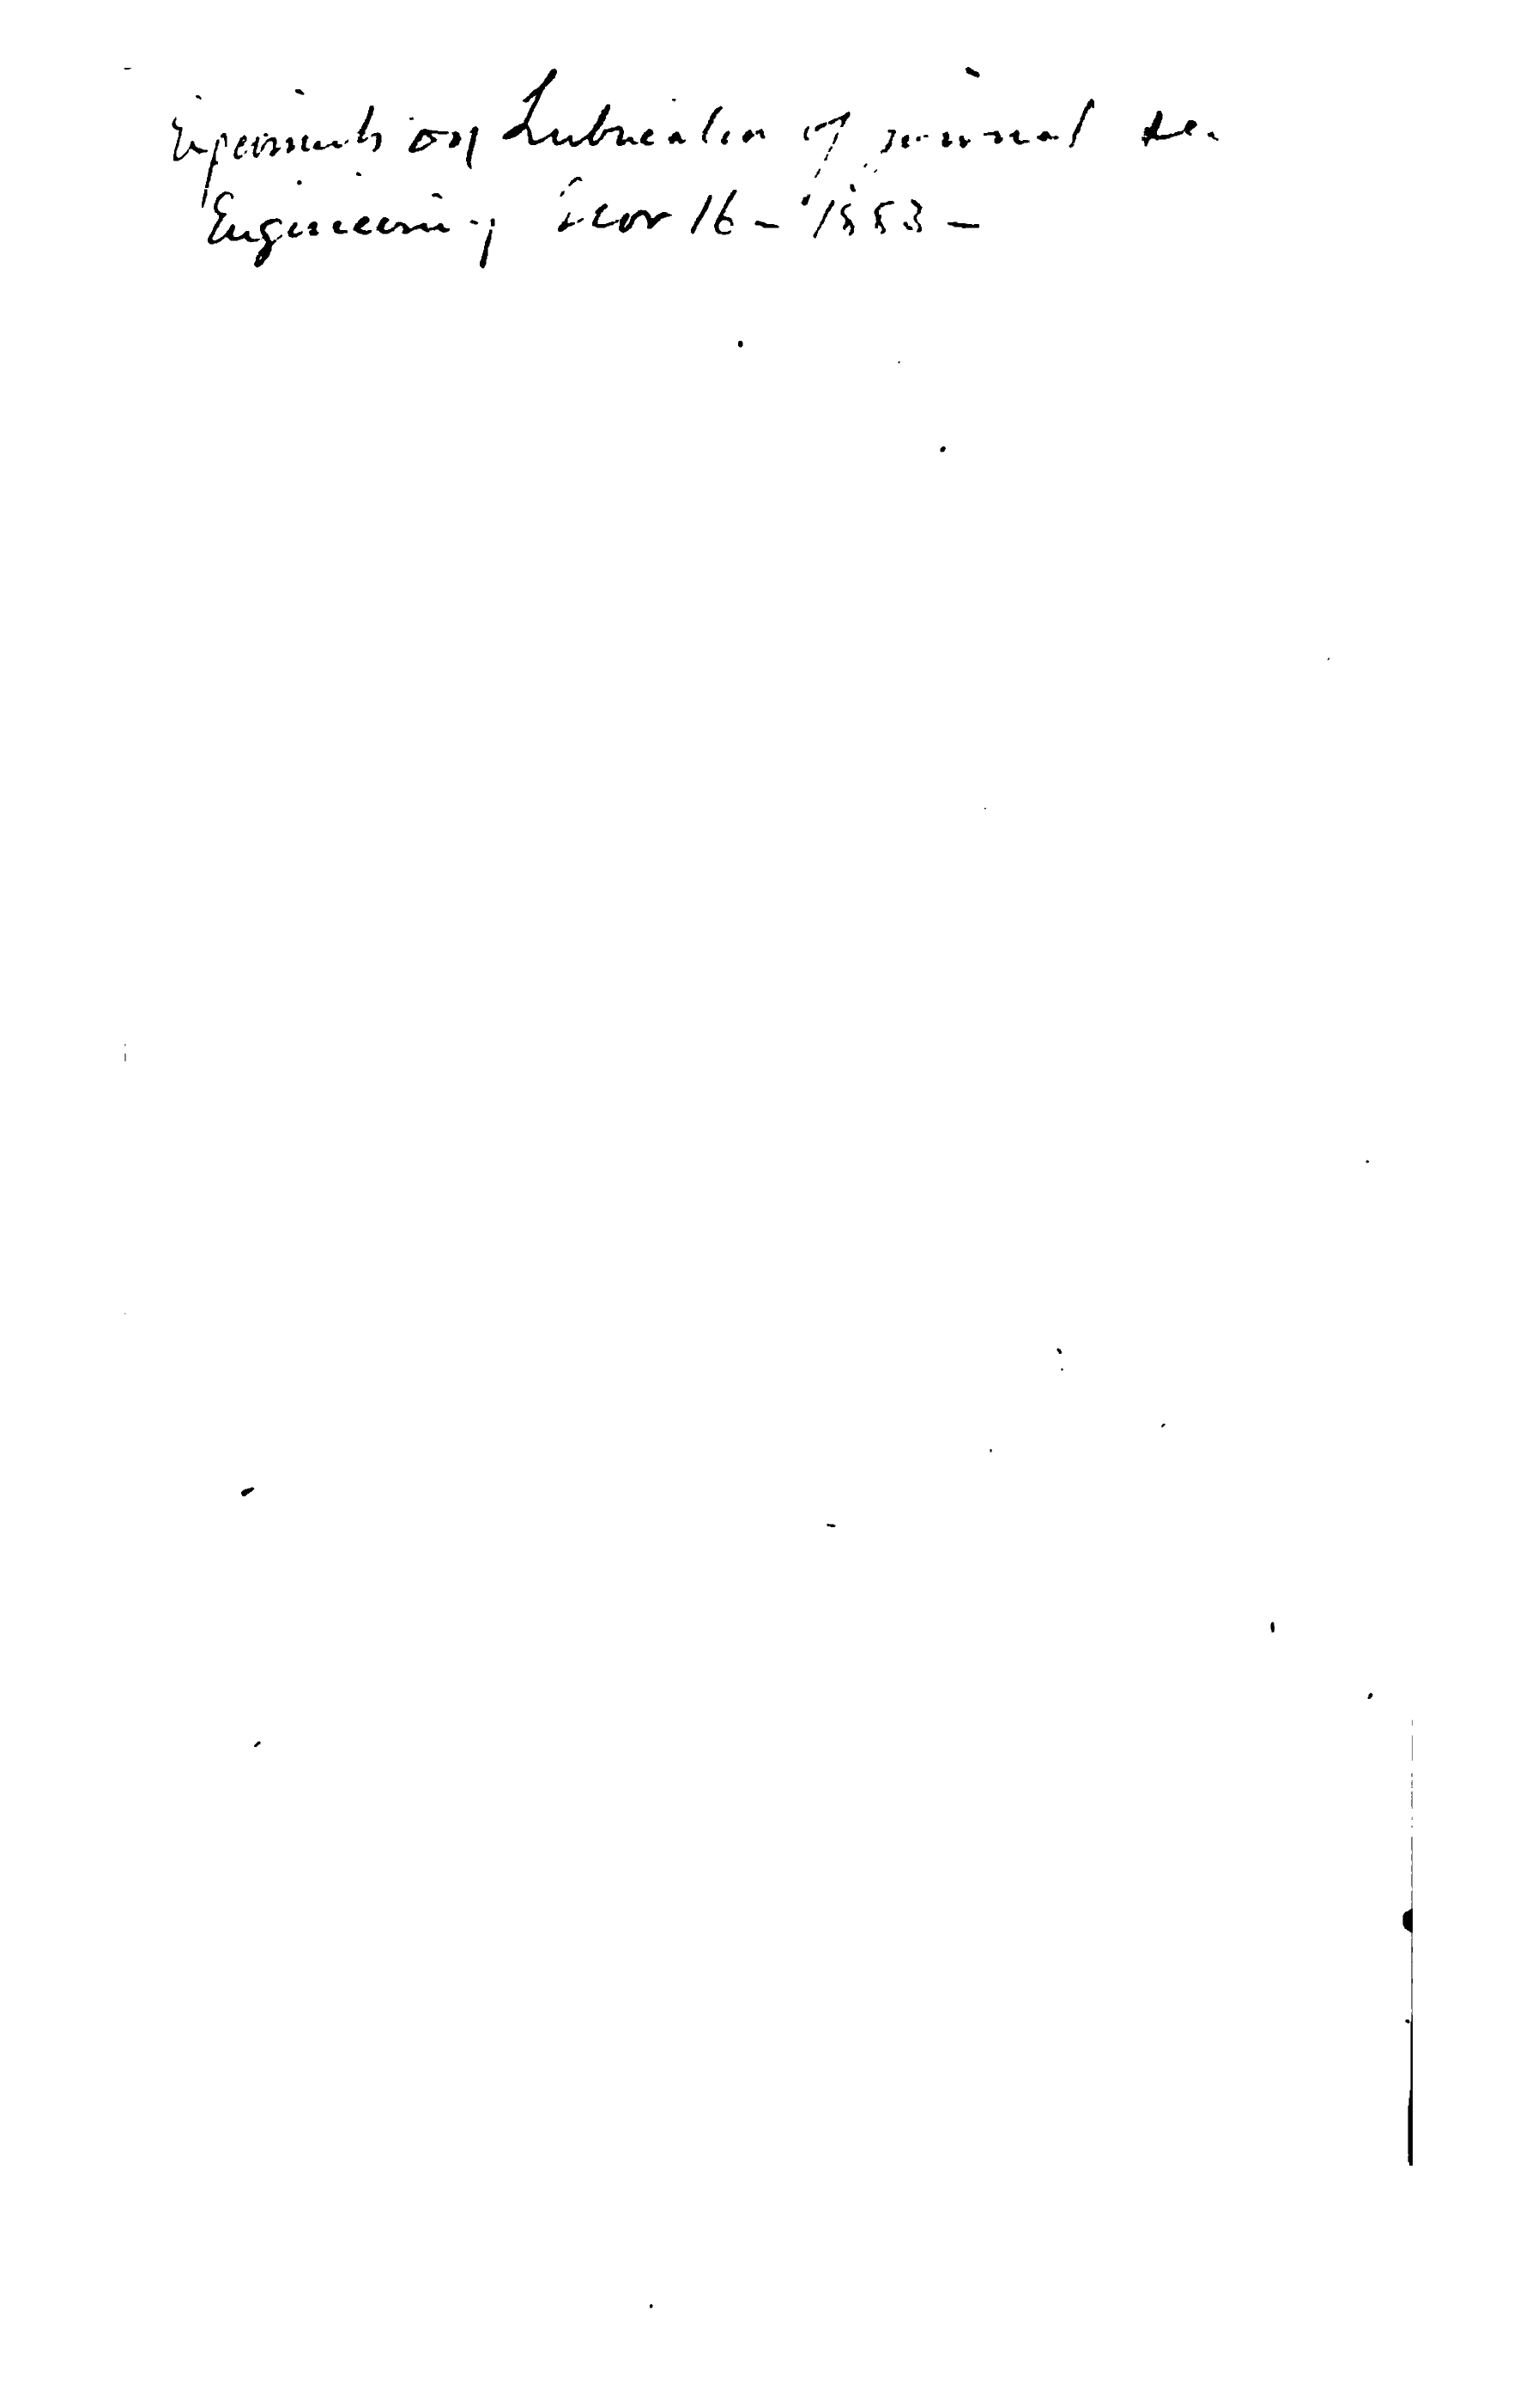 Experiments on Lubrication of journal see
Engineering Nov 16 - 1883 -